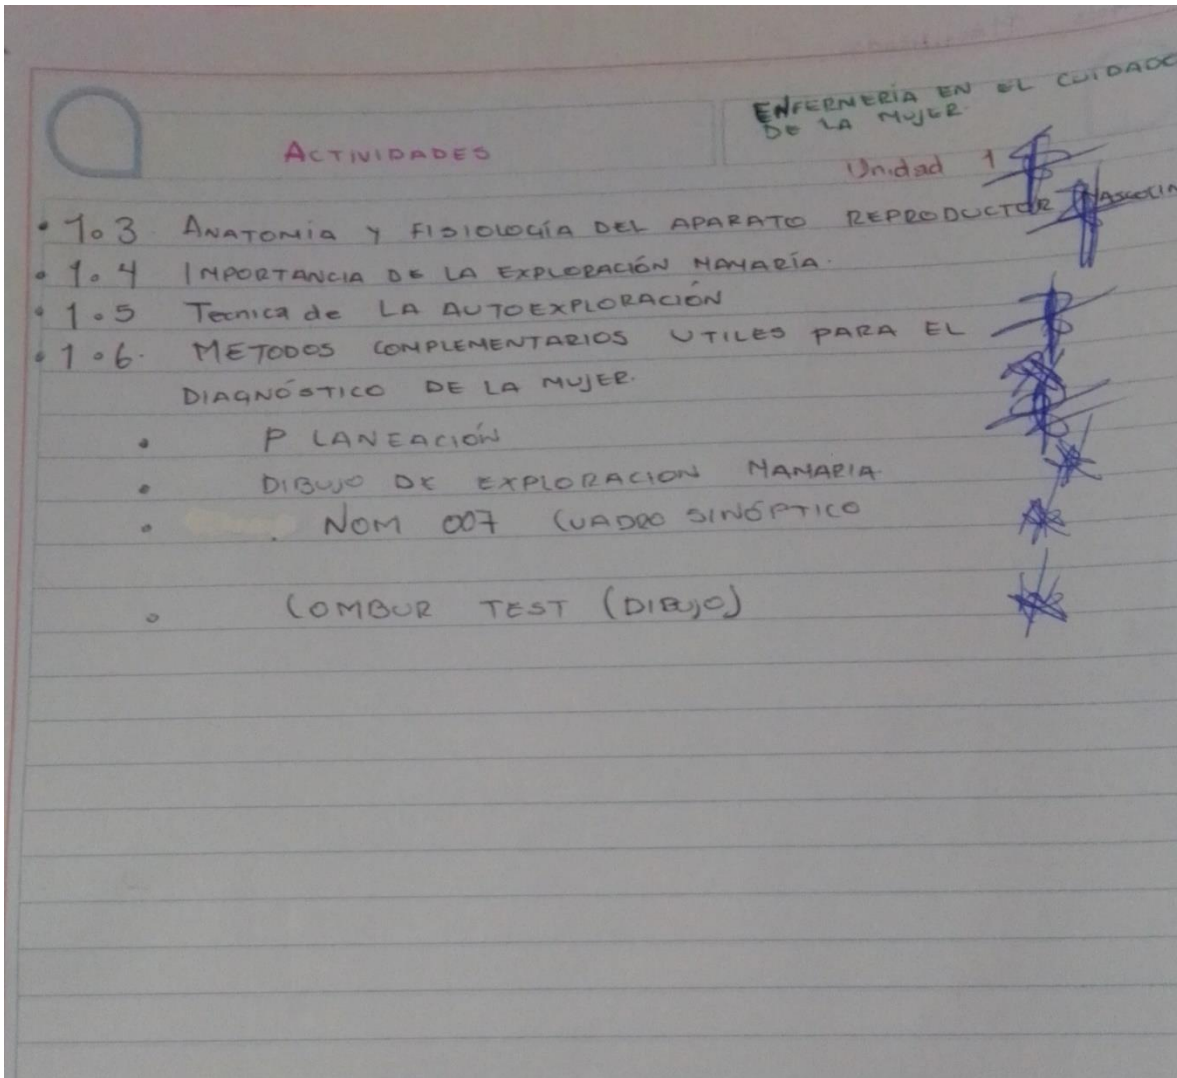 ENFERMERÍA EN EL CUIDADO
DE LA MUJER.
ACTIVIDADES
Unidad 1
• 1.3 ANATOMÍA Y FISIOLOGÍA DEL APARATO REPRODUCTOR MASCULIN
• 1.4 IMPORTANCIA DE LA EXPLORACIÓN MAMARÍA.
• 1.5 Tecnica de LA AUTOEXPLORACIÓN
• 1.6. METODOS COMPLEMENTARIOS UTILES PARA EL
DIAGNÓSTICO DE LA MUJER.
• PLANEACIÓN
• DIBUJO DE EXPLORACION MAMARIA.
• NOM 007 CUADRO SINÓPTICO
• COMBUR TEST (DIBUJO)